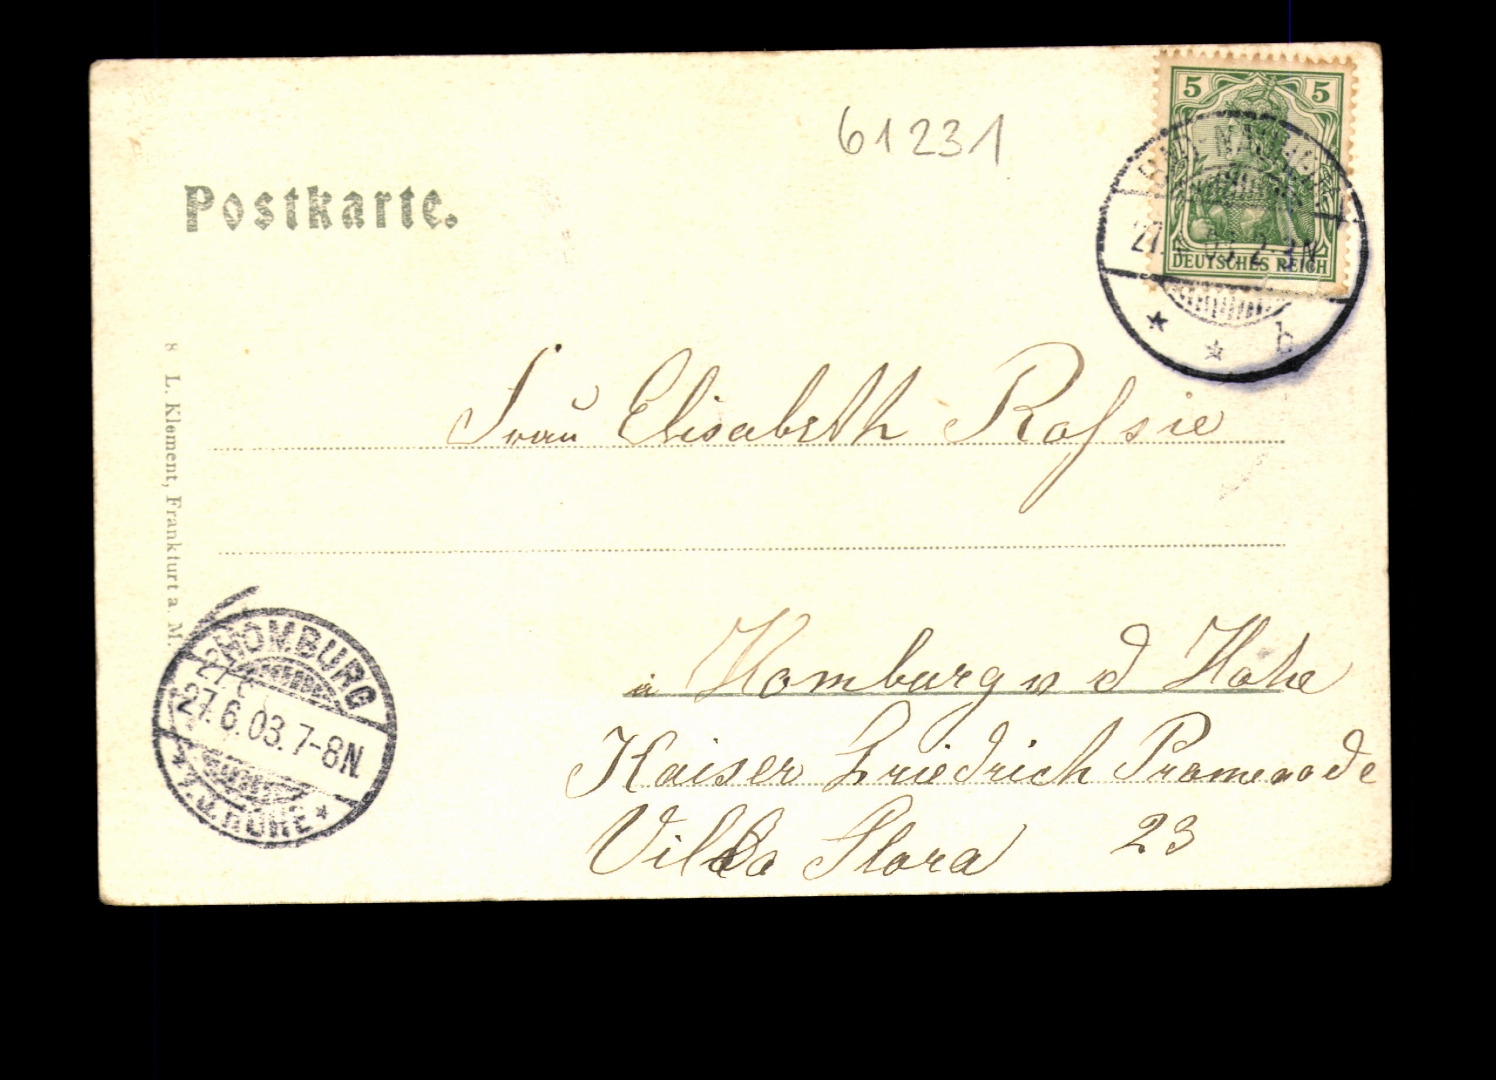 61231
5 5
DEUTSCHES REICH
Postkarte.
27. 2-3N
b
8 L. Klement, Frankfurt a. M.
Frau Elisabeth Rofsie
in Homburg v d Höhe
Kaiser Friedrich Promenade
Villa Flora 23
HOMBURG
27.6.03.7-8N.
V.D.HÖHE